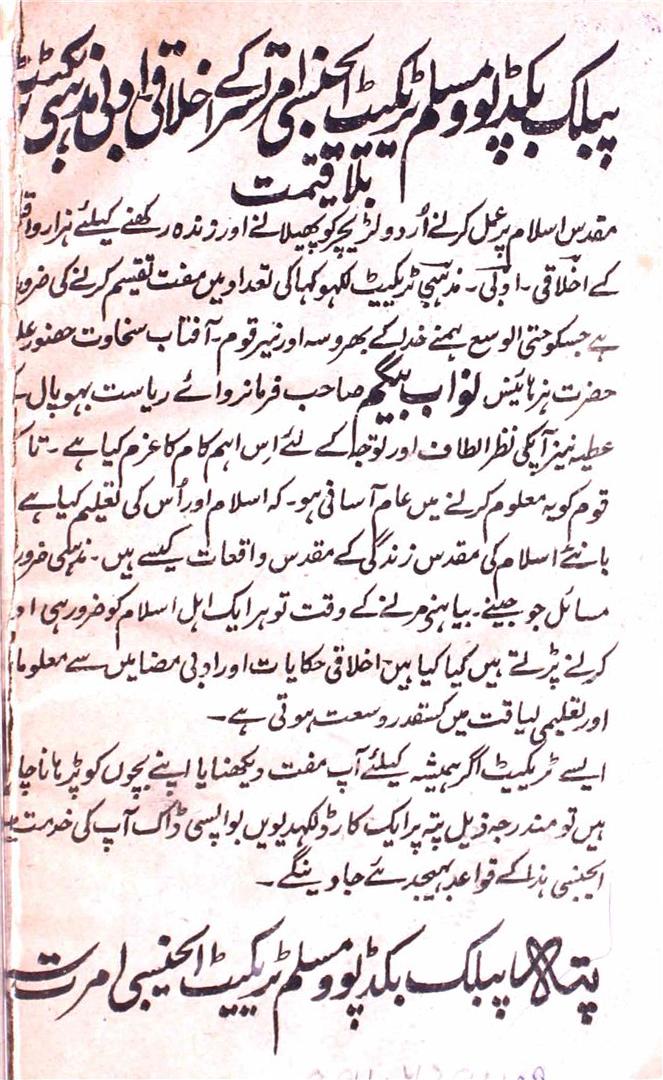 پبلک بکڈپو و مسلم ٹریکیٹ ایجنسی امرتسر کے اخلاقی ادبی مذہبی ٹریکیٹ
بلا قیمت
مقدس اسلام پر عمل کرنے اُردو لٹریچر کو پھیلانے اور زندہ رکھنے کیلئے ہزار
کے اخلاقی ۔ ادبی ۔ مذہبی ٹریکیٹ لکھو کہا کی تعداد میں مفت تقسیم کرنے کی ضرو
ہے جسکو حتی الوسع ہمنے خدا کے بھروسہ اور نیز قوم ۔ آفتاب سخاوت حضور
حضرت ہر ہائینس نواب بیگم صاحب فرمانروائے ریاست بہوپال ۔
عطیہ نیز آپکی نظر الطاف اور توجہ کے لئے اِس اہم کام کا عزم کیا ہے ۔ تا
قوم کو یہ معلوم کرنے میں عام آسانی ہو ۔ کہ اسلام اور اُس کی تعلیم کیا ہے
بانئے اسلام کی مقدس زندگی کے مقدس واقعات کیسے ہیں ۔ مذہبی ضرور
مسائل جو جینے ۔ بیاہنے مرنے کے وقت تو ہر ایک اہل اسلام کو ضرور ہی اد
کرنے پڑتے ہیں کیا کیا ہیں اخلاقی حکایات اور ادبی مضامیں سے معلوما
اور تعلیمی لیاقت میں کسقدر وسعت ہوتی ہے ۔
ایسے ٹریکیٹ اگر ہمیشہ کیلئے آپ مفت دیکھنا یا اپنے بچوں کو پڑہانا چا
ہیں تو مندرجہ ذیل پتہ پر ایک کارڈ لکھدیویں بواپسی ڈاک آپ کی خدمت میں
ایجنسی ہذا کے قواعد بہیجدئے جاوینگے ۔
پتہ پبلک بکڈپو و مسلم ٹریکیٹ ایجنسی امرت